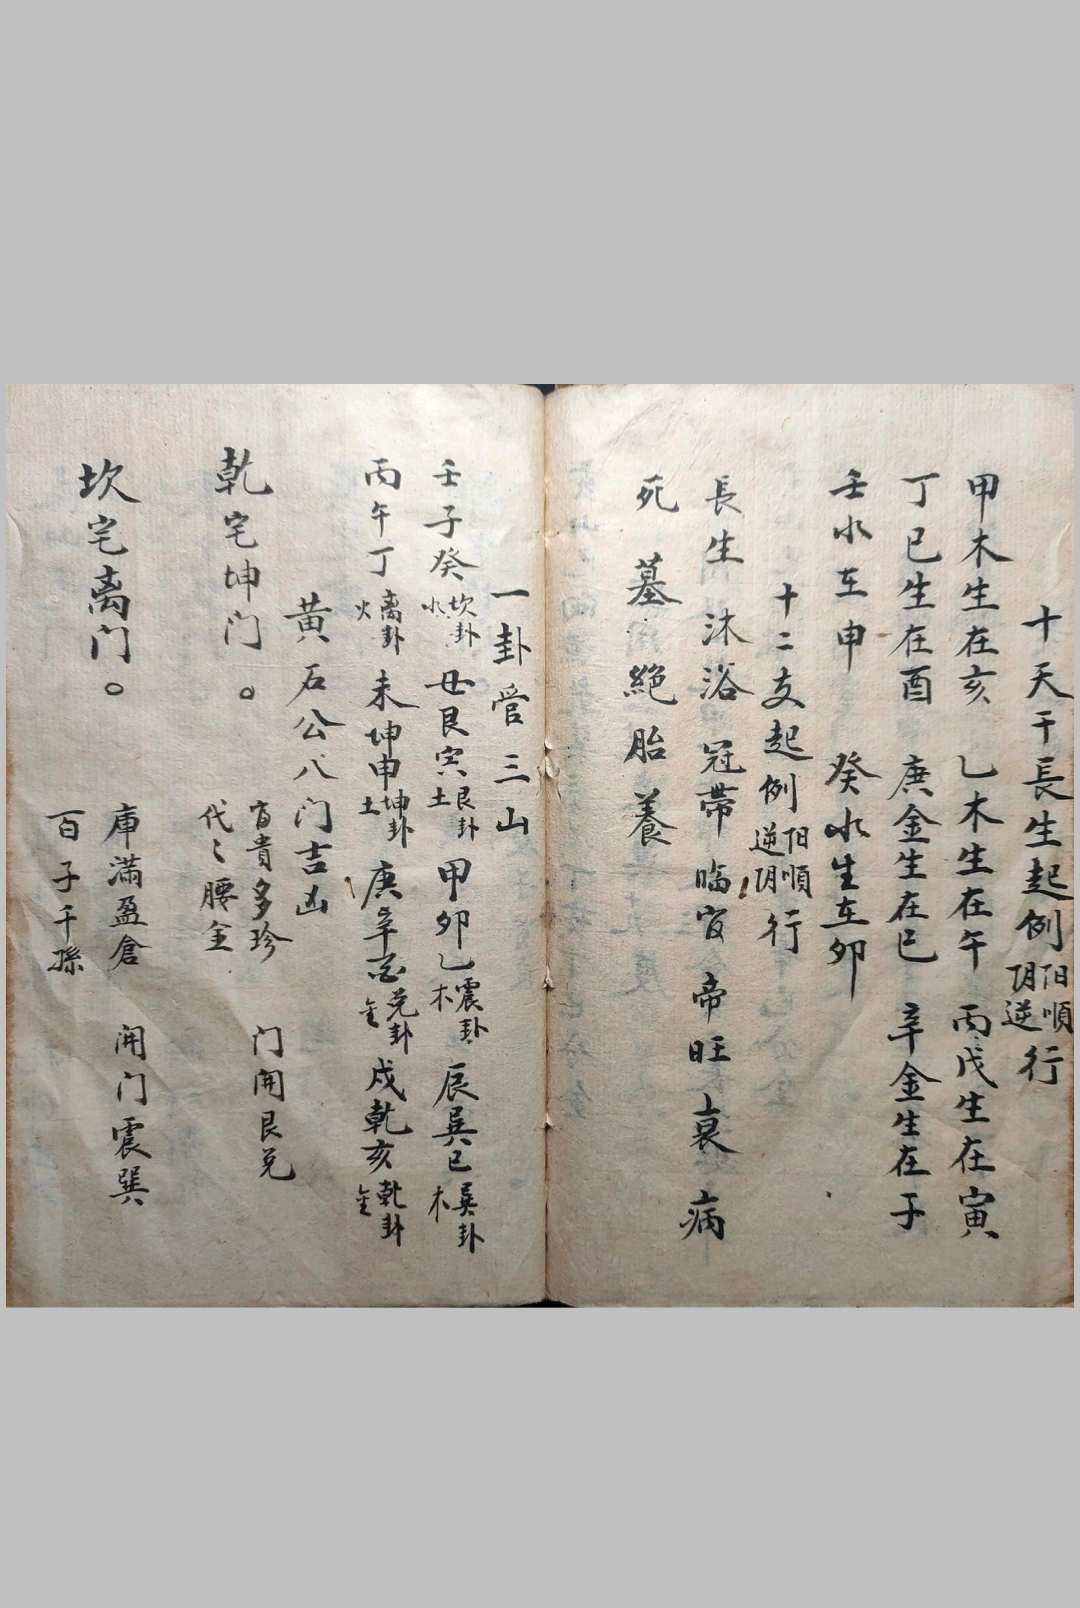 十天干長生起例阳順阴逆行
甲木生在亥 乙木生在午 丙戊生在寅
丁己生在酉 庚金生在巳 辛金生在子
壬水在申 癸水生在卯
十二支起例阳順阴逆行
長生 沐浴 冠帶 臨官 帝旺 衰 病
死 墓 絕 胎 養
一卦管三山
壬子癸坎卦水 丑艮寅艮卦土 甲卯乙震卦木 辰巽巳巽卦木
丙午丁离卦火 未坤申坤卦土 庚辛酉兑卦金 戌乾亥乾卦金
黄石公八门吉凶
乾宅坤门。 富貴多珍 门開艮兑
代〻腰金
坎宅离门。 庫滿盈倉 開门震巽
百子千孫